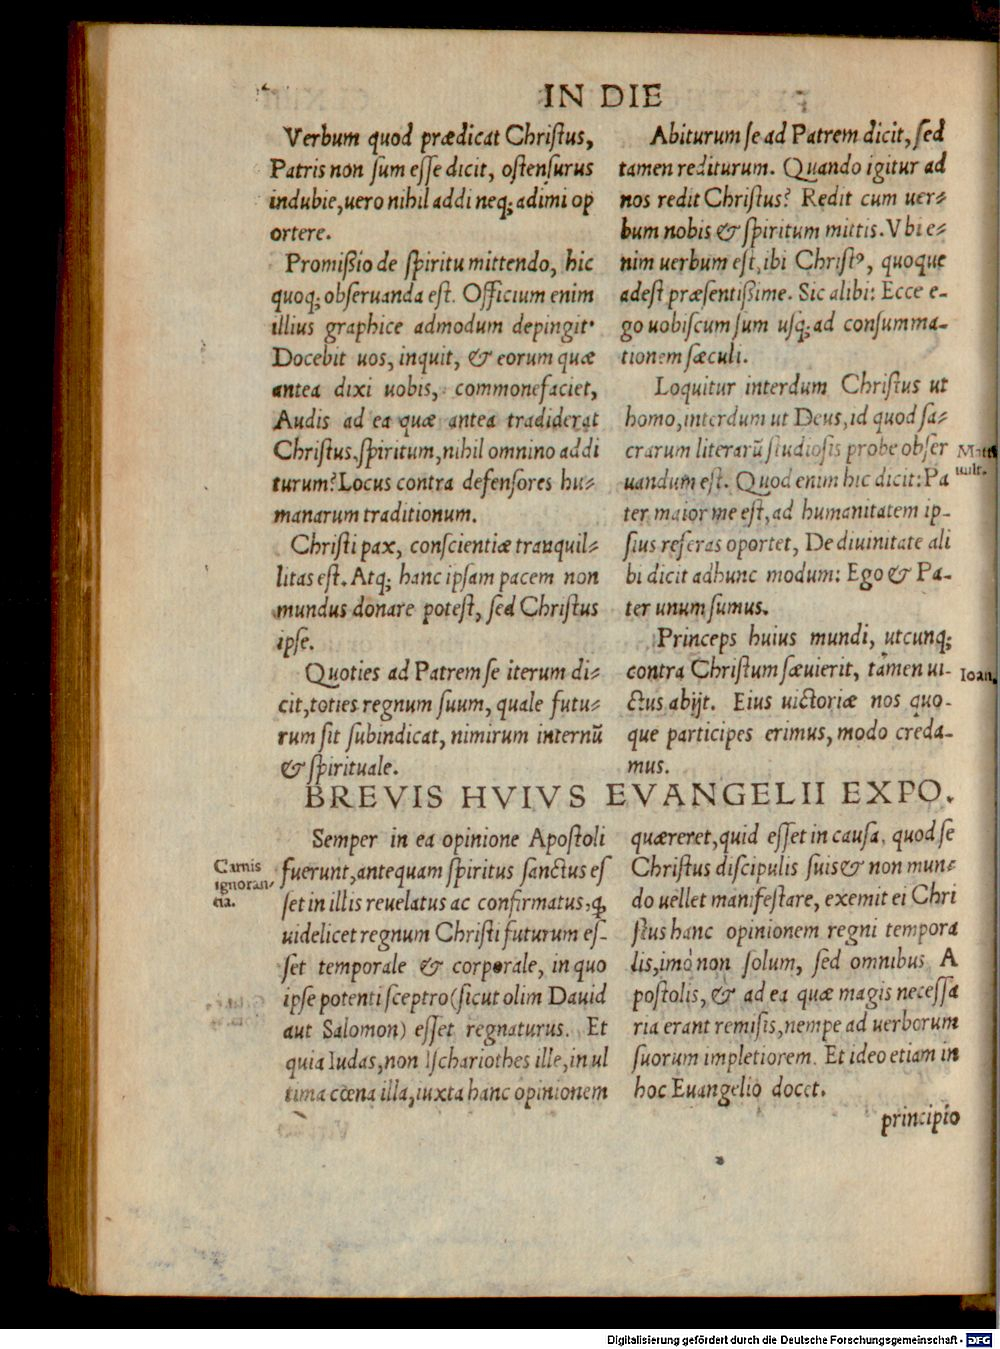 IN DIE
Verbum quod prædicat Chriſtus,
Patris non ſum eſſe dicit, oſtenſurus
indubie, uero nihil addi neq; adimi op
ortere.
Promiſſio de ſpiritu mittendo, hic
quoq; obſeruanda eſt. Officium enim
illius graphice admodum depingit.
Docebit uos, inquit, & eorum quæ
antea dixi uobis, commonefaciet,
Audis ad ea quæ antea tradiderat
Chriſtus, ſpiritum, nihil omnino addi
turum? Locus contra defenſores hu⸗
manarum traditionum.
Chriſti pax, conſcientiæ tranquil⸗
litas eſt. Atq; hanc ipſam pacem non
mundus donare poteſt, ſed Chriſtus
ipſe.
Quoties ad Patrem ſe iterum di⸗
cit, toties regnum ſuum, quale futu⸗
rum ſit ſubindicat, nimirum internũ
& ſpirituale.
Abiturum ſe ad Patrem dicit, ſed
tamen rediturum. Quando igitur ad
nos redit Chriſtus? Redit cum uer⸗
bum nobis & ſpiritum mittis. Vbi e⸗
nim uerbum eſt, ibi Chriſtꝰ, quoque
adeſt præſentiſſime. Sic alibi: Ecce e-
go uobiſcum ſum uſq; ad conſumma-
tionem ſæculi.
Loquitur interdum Chriſtus ut
homo, interdum ut Deus, id quod ſa⸗
crarum literarũ ſtudioſis probe obſer
uandum eſt. Quod enim hic dicit: Pa
ter maior me eſt, ad humanitatem ip-
ſius referas oportet, De diuinitate ali
bi dicit adhunc modum: Ego & Pa-
ter unum ſumus.
Princeps huius mundi, utcunq;
contra Chriſtum ſæuierit, tamen ui-
ctus abijt. Eius uictoriæ nos quo-
que participes erimus, modo creda-
mus.
Matt
ult.
Ioan.
BREVIS HVIVS EVANGELII EXPO.
Carnis
ignoran⸗
tia.
Semper in ea opinione Apoſtoli
fuerunt, antequam ſpiritus ſanctus eſ
ſet in illis reuelatus ac confirmatus, ꝙ
uidelicet regnum Chriſti futurum eſ-
ſet temporale & corporale, in quo
ipſe potenti ſceptro (ſicut olim Dauid
aut Salomon) eſſet regnaturus. Et
quia Iudas, non Iſchariothes ille, in ul
tima cœna illa, iuxta hanc opinionem
quæreret, quid eſſet in cauſa, quod ſe
Chriſtus diſcipulis ſuis & non mun⸗
do uellet manifeſtare, exemit ei Chri
ſtus hanc opinionem regni tempora
lis, imò non ſolum, ſed omnibus A
poſtolis, & ad ea quæ magis neceſſa
ria erant remiſis, nempe ad uerborum
ſuorum impletiorem. Et ideo etiam in
hoc Euangelio docet.
principio
Digitalisierung gefördert durch die Deutsche Forschungsgemeinschaft - DFG